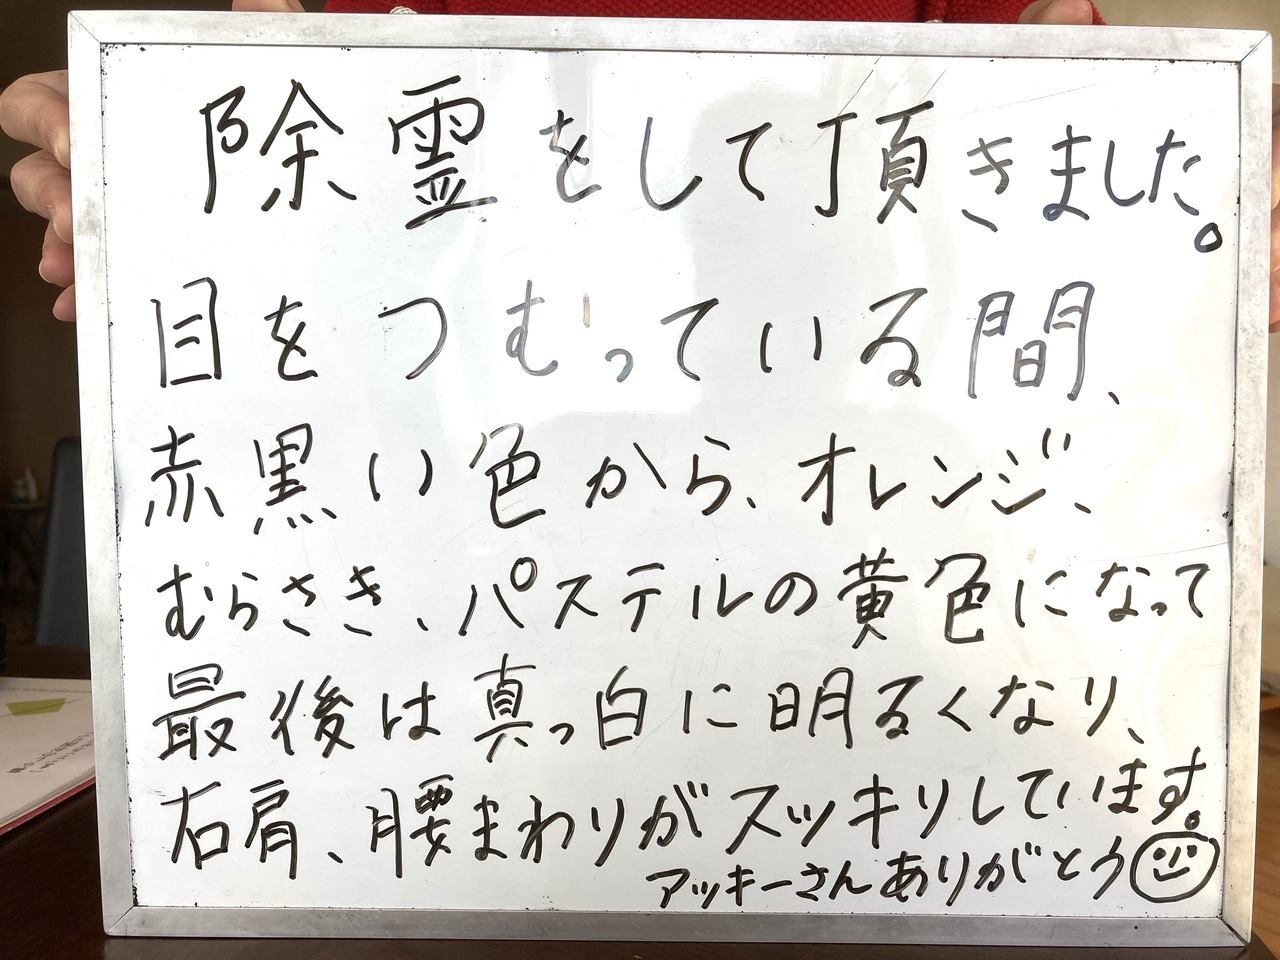 除霊をして頂きました。
目をつむっている間、
赤黒い色から、オレンジ、
むらさき、パステルの黄色になって
最後は真っ白に明るくなり、
右肩、腰まわりがスッキリしています。
アッキーさんありがとう